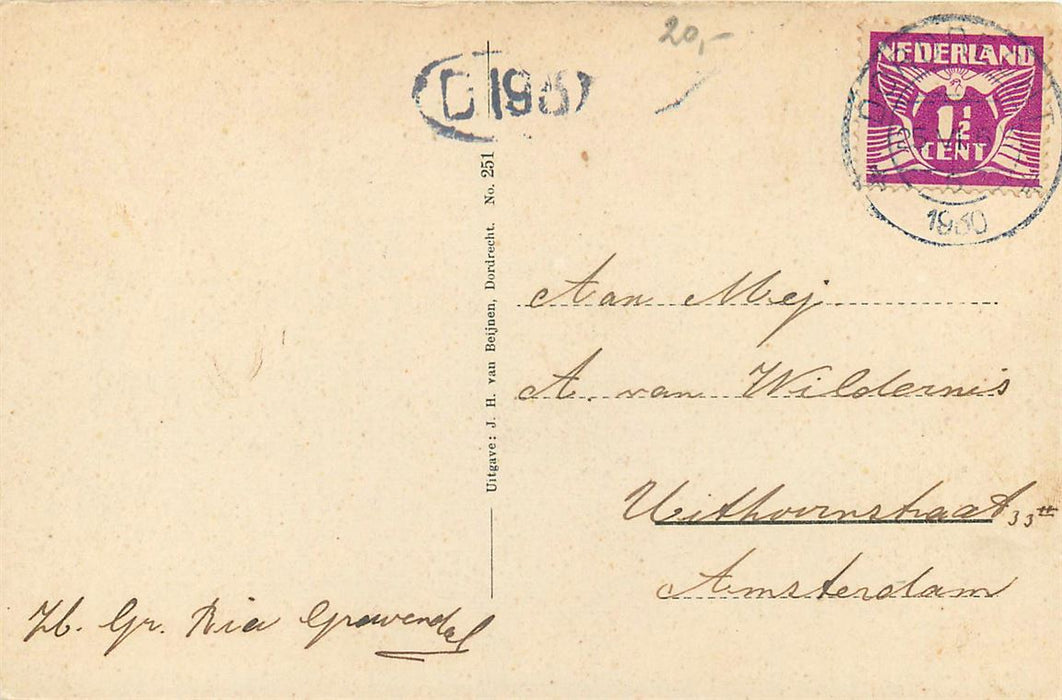 20,-
D 198
NEDERLAND
1½
CENT
1930
Uitgave: J. H. van Beijnen, Dordrecht. No. 251
Aan Mej.
A. van Wildernis
Uithoornstraat 33 II
Amsterdam
Hb. Gr. Ria Gravendel